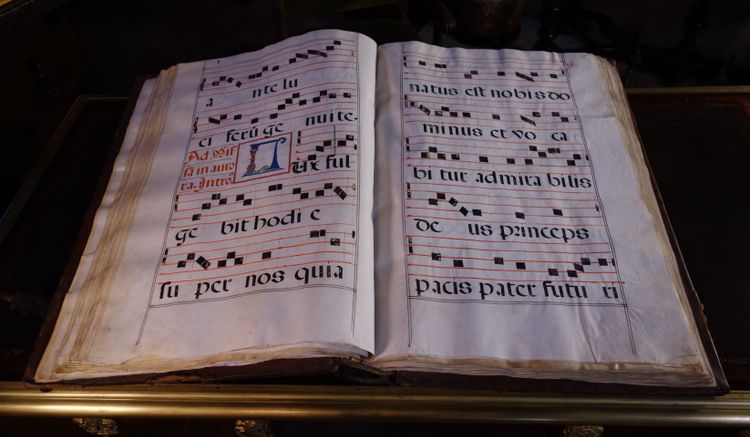 a nte lu
ci ferū ge nui te.
Ad Miſ
ſā in auro
ra. Intro.
L ux ful
ge bit hodi e
ſu per nos quia
natus eſt nobis do
minus et vo ca
bi tur admira bilis
de us princeps
pacis pater futu ri